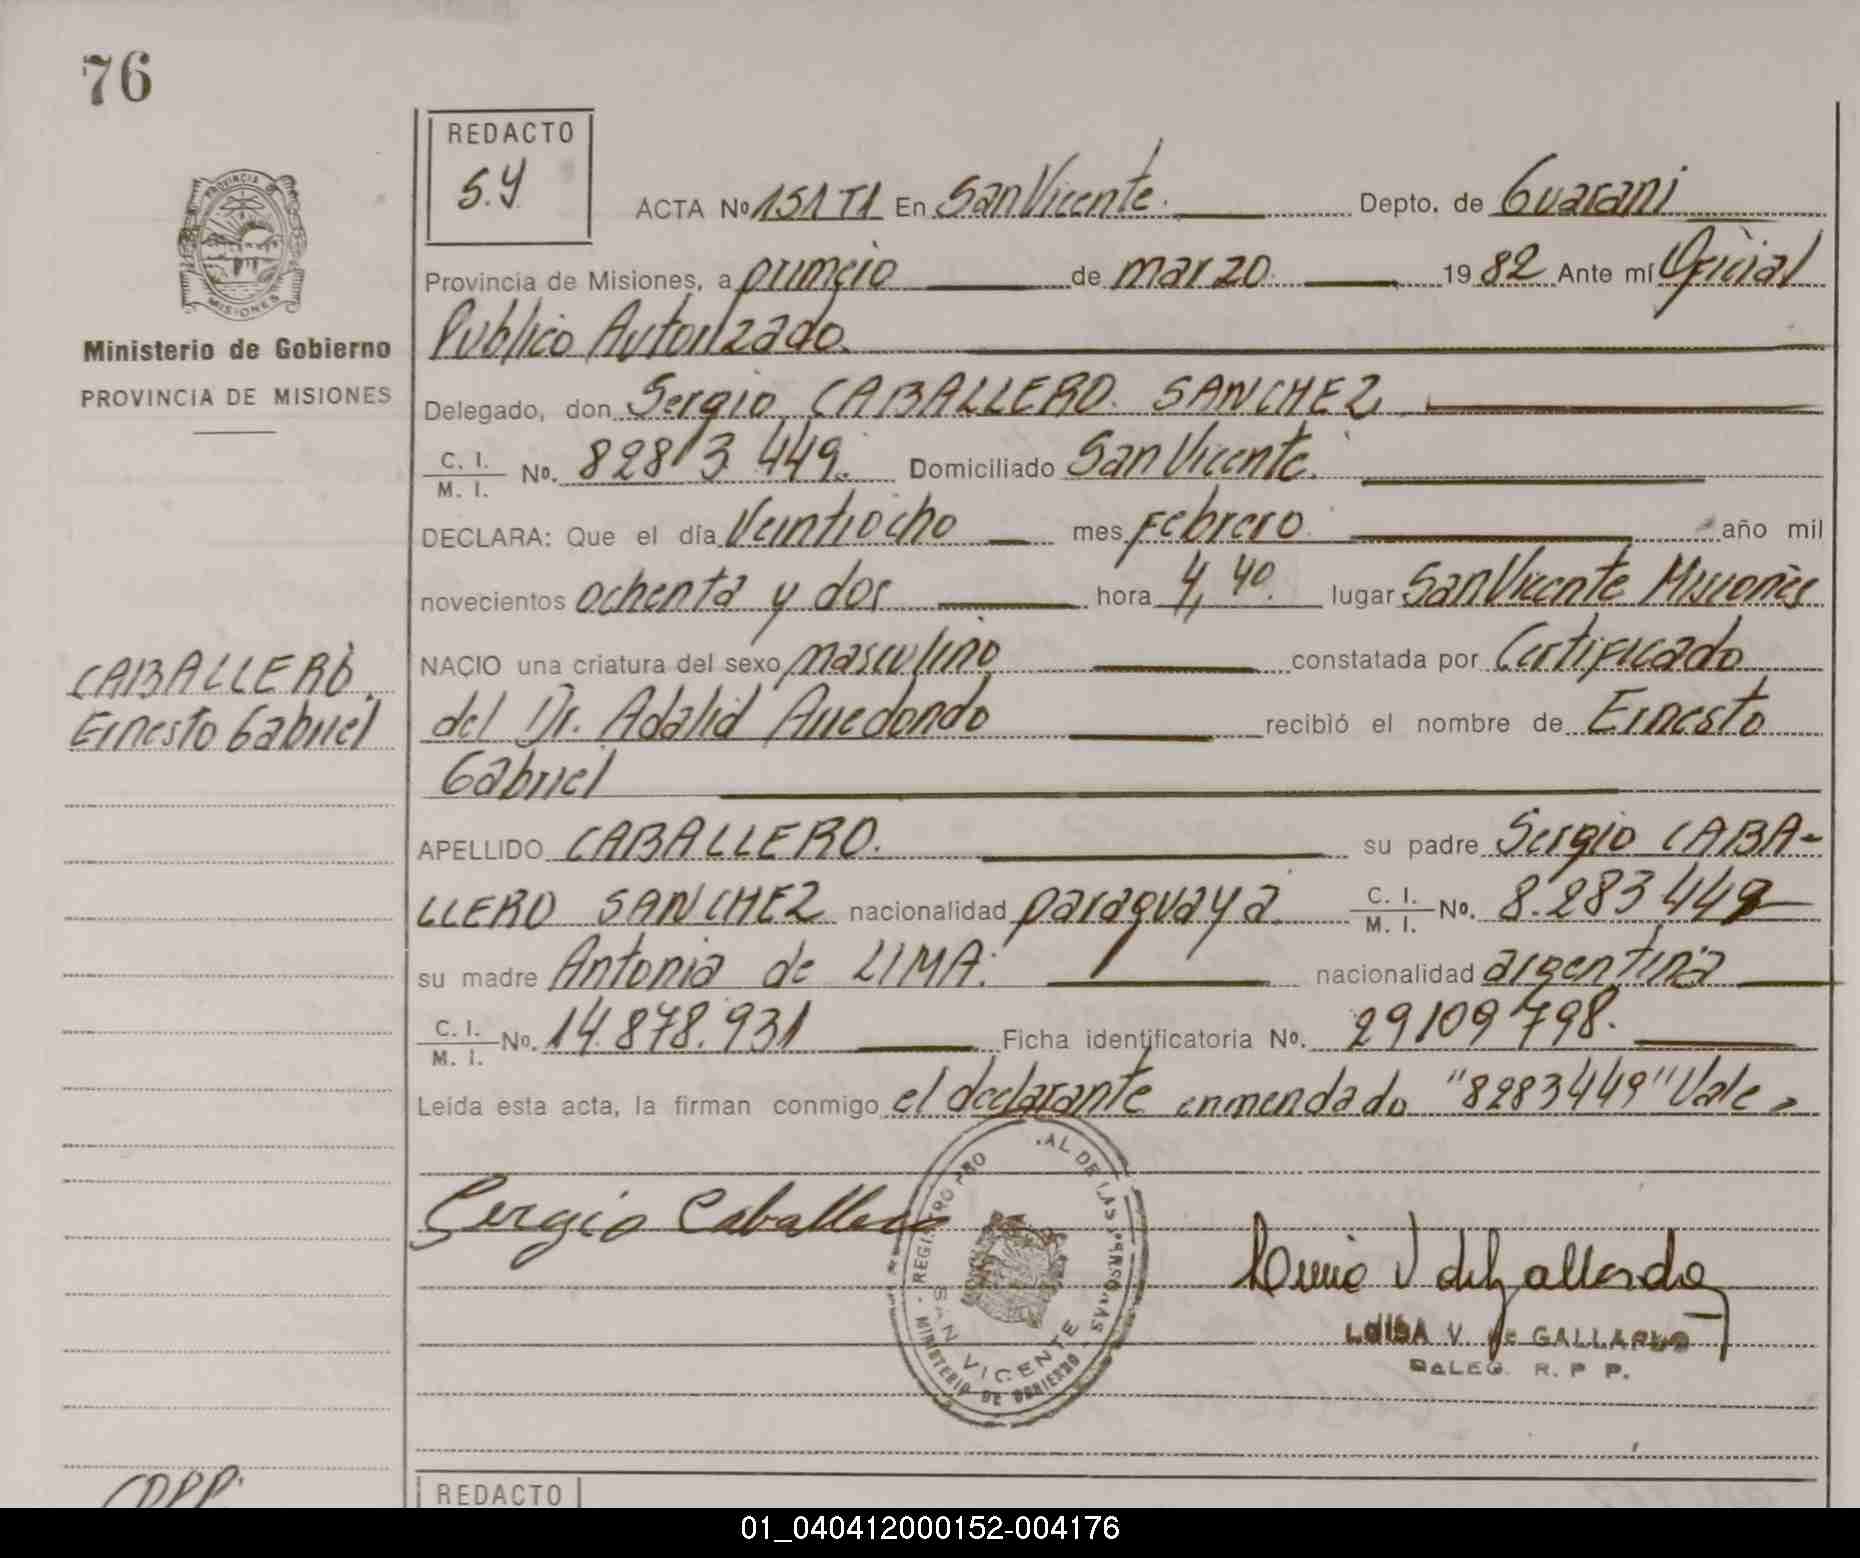 76
REDACTO
S.Y
PROVINCIA DE
MISIONES
Ministerio de Gobierno
PROVINCIA DE MISIONES
ACTA Nº 151 T1 En San Vicente. Depto. de Guarani
Provincia de Misiones, a primero de marzo. 1982 Ante mí Oficial
Publico Autorizado.
Delegado, don Sergio CABALLERO SANCHEZ
C. I. / M. I. Nº. 8283 449. Domiciliado San Vicente.
DECLARA: Que el día Veintiocho mes Febrero. año mil
novecientos ochenta y dos hora 4,40. lugar San Vicente Misiones
NACIO una criatura del sexo masculino constatada por Certificado
del Dr. Adalid Arredondo recibió el nombre de Ernesto
Gabriel
CABALLERO.
Ernesto Gabriel
APELLIDO CABALLERO. su padre Sergio CABA-
LLERO SANCHEZ nacionalidad paraguaya C. I. / M. I. Nº. 8.283 449
su madre Antonia de LIMA. nacionalidad argentina
C. I. / M. I. Nº. 14.878.931 Ficha identificatoria Nº. 29109798.
Leída esta acta, la firman conmigo el declarante enmendado "8283449" Vale
Sergio Caballero
REGISTRO PRO AL DE LAS PERSONAS
SAN VICENTE
MINISTERIO DE GOBIERNO
LUISA V. de GALLARDO
DELEG. R. P P.
REDACTO
01_040412000152-004176